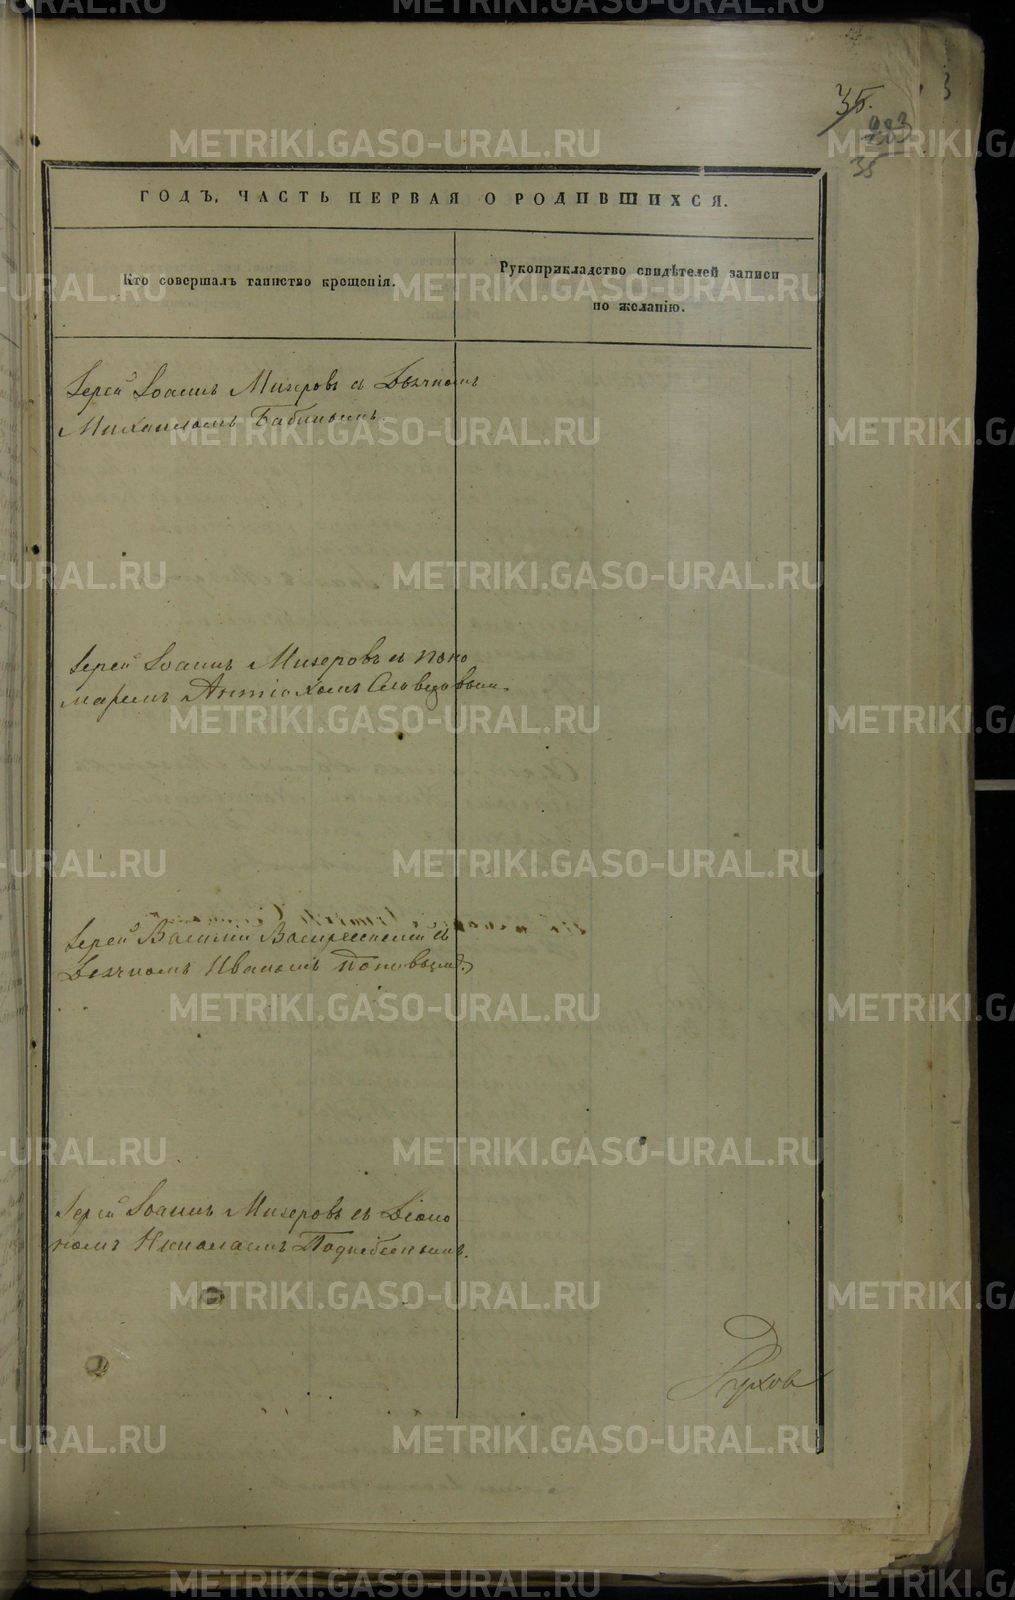 35.
283
35
ГОДЪ, ЧАСТЬ ПЕРВАЯ О РОДИВШИХСЯ.
Кто совершалъ таинство крещенія.
Рукоприкладство свидѣтелей записи
по желанію.
Іерей Іоаннъ Мизеровъ съ Дьячкомъ
Михаиломъ Бабинымъ.
Іерей Іоаннъ Мизеровъ съ поно
маремъ Антіохомъ
Іерей Василій Воскресенскій съ
Дьячкомъ Иваномъ Поповымъ.
Іерей Іоаннъ Мизеровъ съ Діако
номъ Николаемъ Поднебеснымъ.
METRIKI.GASO-URAL.RU